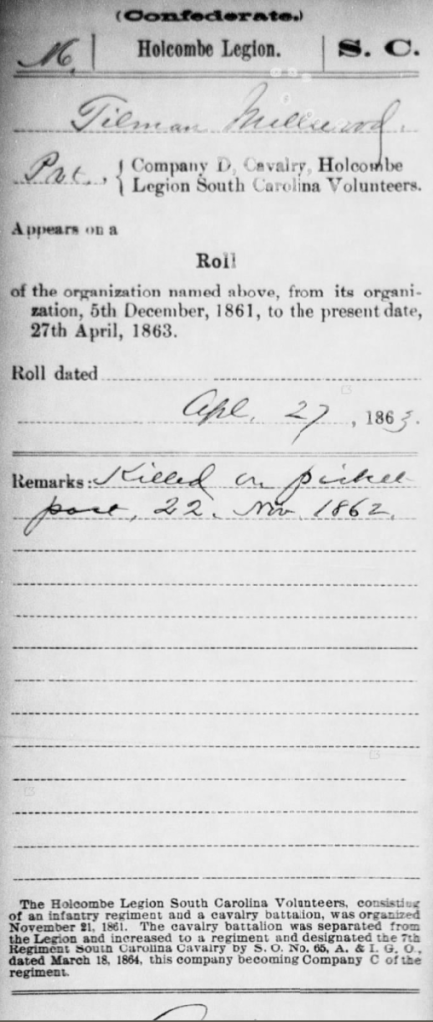 (Confederate.)
M. | Holcombe Legion. | S. C.
Tilman Millwood.
Pvt., { Company D, Cavalry, Holcombe
Legion South Carolina Volunteers.
Appears on a
Roll
of the organization named above, from its organi-
zation, 5th December, 1861, to the present date,
27th April, 1863.
Roll dated
Apl. 27, 1863.
Remarks: Killed on picket
post, 22. Nov. 1862.
The Holcombe Legion South Carolina Volunteers, consisting
of an infantry regiment and a cavalry battalion, was organized
November 21, 1861. The cavalry battalion was separated from
the Legion and increased to a regiment and designated the 7th
Regiment South Carolina Cavalry by S. O. No. 65, A. & I. G. O.,
dated March 18, 1864, this company becoming Company C of the
regiment.